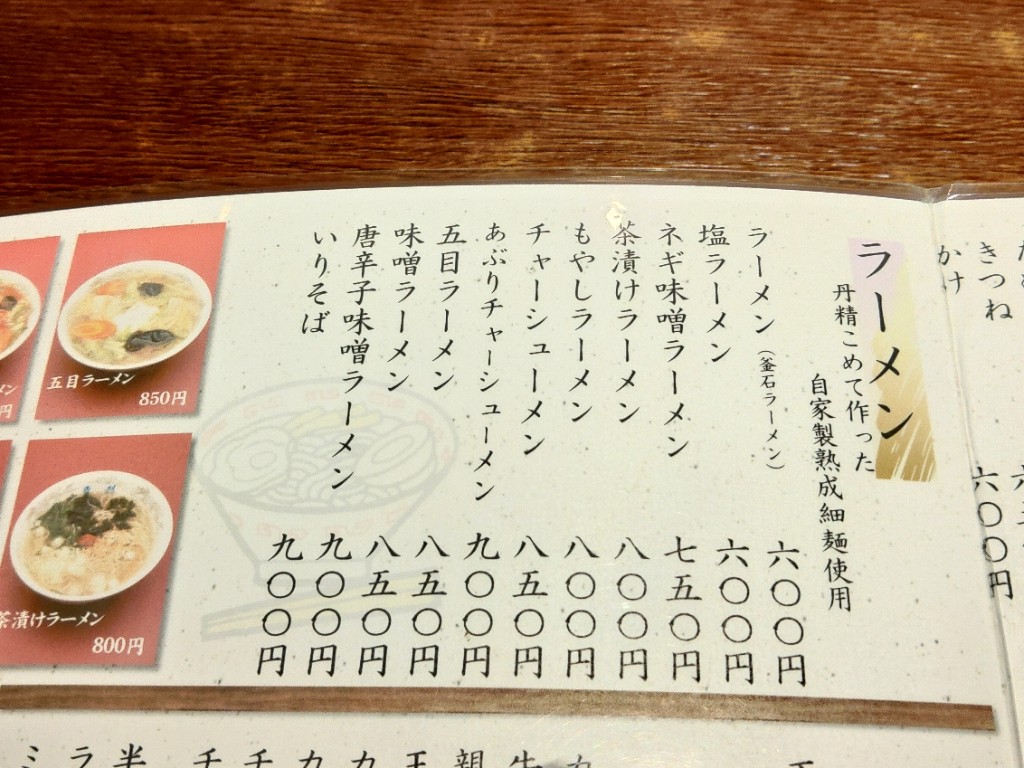 きつね
かけ
六〇〇円
ラーメン
丹精こめて作った
自家製熟成細麺使用
ラーメン(釜石ラーメン) 六〇〇円
塩ラーメン 六〇〇円
ネギ味噌ラーメン 七五〇円
茶漬けラーメン 八〇〇円
もやしラーメン 八〇〇円
チャーシューメン 八五〇円
あぶりチャーシューメン 九〇〇円
五目ラーメン 八五〇円
味噌ラーメン 八五〇円
唐辛子味噌ラーメン 九〇〇円
いりそば 九〇〇円
五目ラーメン
850円
茶漬けラーメン
800円